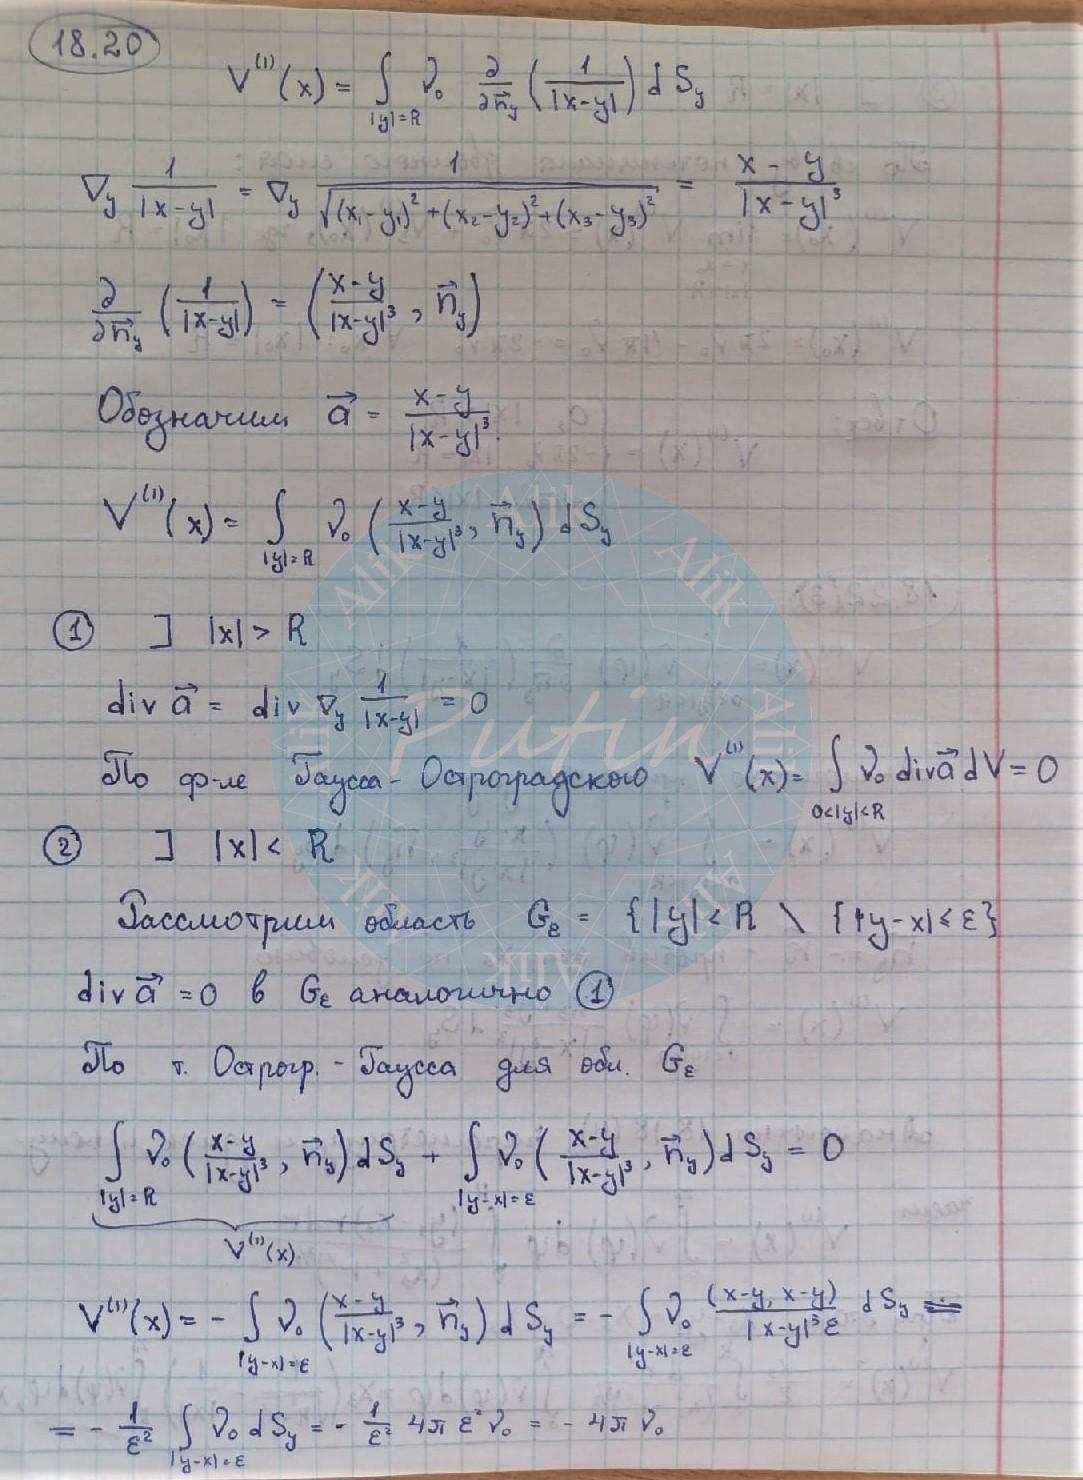 18.20
V⁽¹⁾(x) = ∫_{|y|=R} ν₀ ∂/∂n⃗_y (1/|x-y|) dS_y
∇_y 1/|x-y| = ∇_y 1/√((x₁-y₁)²+(x₂-y₂)²+(x₃-y₃)²) = (x-y)/|x-y|³
∂/∂n⃗_y (1/|x-y|) = ((x-y)/|x-y|³, n⃗_y)
Обозначим a⃗ = (x-y)/|x-y|³.
V⁽¹⁾(x) = ∫_{|y|=R} ν₀ ((x-y)/|x-y|³, n⃗_y) dS_y
① ] |x| > R
div a⃗ = div ∇_y 1/|x-y| = 0
По ф-ле Гаусса-Остроградского V⁽¹⁾(x) = ∫_{0<|y|<R} ν₀ div a⃗ dV = 0
② ] |x| < R
Рассмотрим область G_ε = {|y| < R \ {|y-x| ≤ ε}
div a⃗ = 0 в G_ε аналогично ①
По т. Острогр.-Гаусса для обл. G_ε
∫_{|y|=R} ν₀ ((x-y)/|x-y|³, n⃗_y) dS_y + ∫_{|y-x|=ε} ν₀ ((x-y)/|x-y|³, n⃗_y) dS_y = 0
V⁽¹⁾(x)
V⁽¹⁾(x) = - ∫_{|y-x|=ε} ν₀ ((x-y)/|x-y|³, n⃗_y) dS_y = - ∫_{|y-x|=ε} ν₀ (x-y, x-y)/(|x-y|³ε) dS_y =
= - 1/ε² ∫_{|y-x|=ε} ν₀ dS_y = - 1/ε² 4π ε² ν₀ = - 4π ν₀
Alik
Alik
Alik
Alik
Alik
Alik
Alik
Alik
Putin